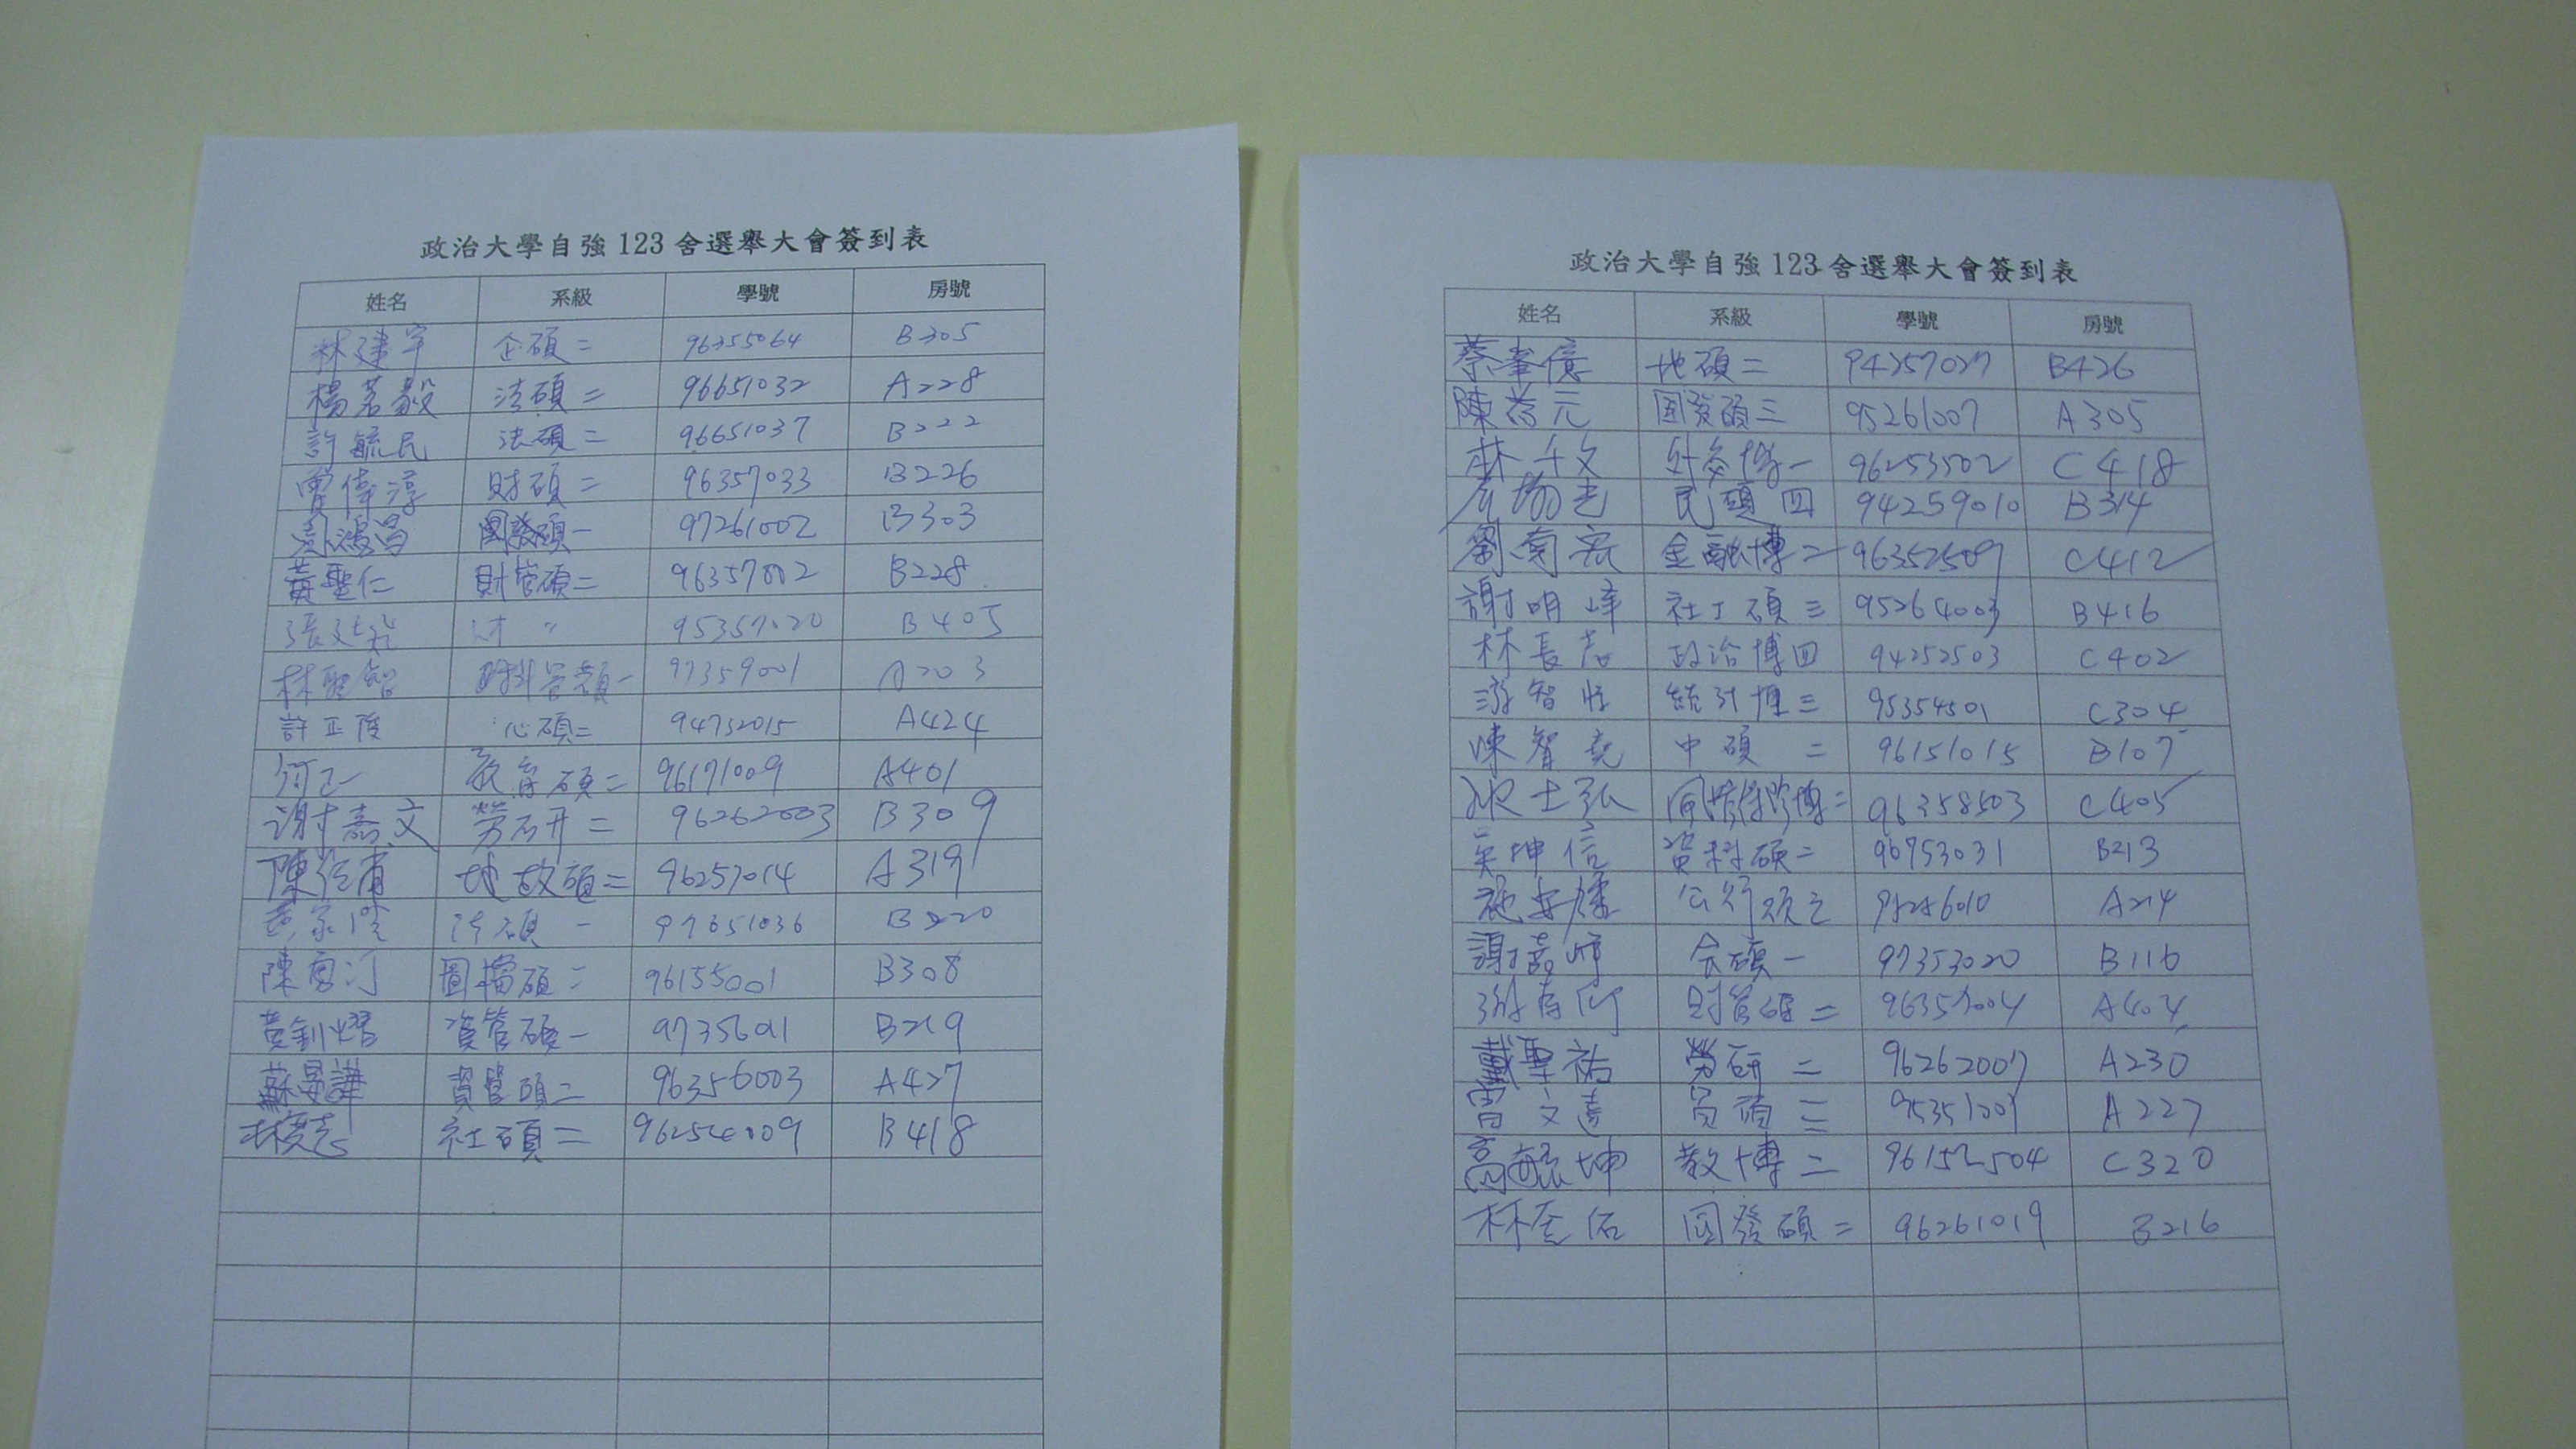 政治大學自強123舍選舉大會簽到表
姓名 系級 學號 房號
林建宇 企碩二 96355064 B305
楊茗毅 法碩二 96651032 A228
許毓民 法碩二 96651037 B222
曾偉淳 財碩二 96357033 B226
鴻昌 國發碩一 97261002 B303
黃聖仁 財管碩二 96357002 B228
張 財 〃 95357020 B405
林聖智 碩一 97359001 A203
許正 心碩二 94752015 A424
何 教育碩二 96171009 A401
謝嘉文 勞研二 96262003 B309
陳 地政碩二 96257014 A319
家 法碩一 97651036 B220
陳 圖檔碩二 96155001 B308
黃釧熠 資管碩一 B219
蘇晏譁 資管碩二 96356003 A427
林 志 社碩二 96254009 B418
政治大學自強123舍選舉大會簽到表
姓名 系級 學號 房號
蔡峯億 地碩二 94257027 B426
陳 元 國發碩三 95261007 A305
林 文 外交博一 96253502 C418
民碩四 94259010 B314
劉 宏 金融博二 96352509 C412
謝明 社工碩三 95264003 B416
林長志 政治博四 94252503 C402
游智 統計博三 95354501 C304
陳智堯 中碩二 96151015 B107
士弘 博二 96358503 C405
吳坤信 資科碩二 96753031 B213
施 公行碩 A214
謝 會碩一 97353020 B116
財管碩二 96357004 A404
戴聖祐 勞研二 96262007 A230
文 貿碩三 95351001 A227
高毓坤 教博二 96152504 C320
林 佑 國發碩二 96261019 B216